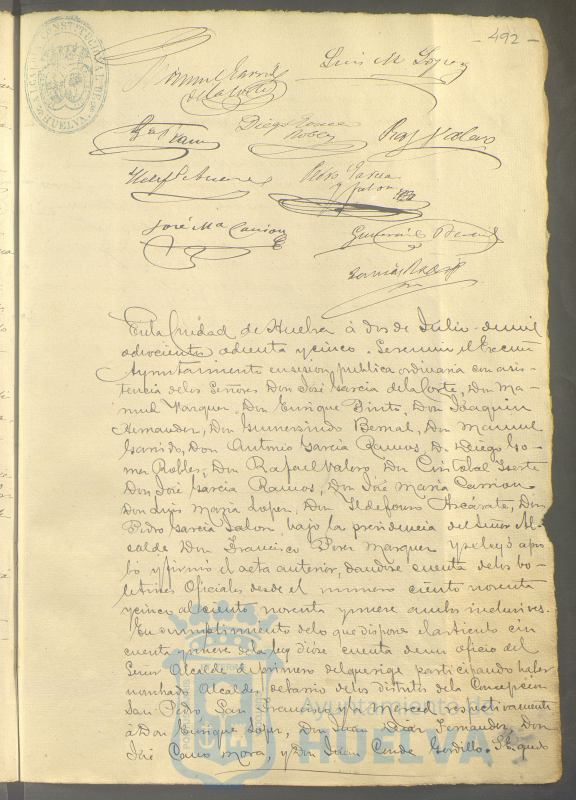 - 492 -
AYUNTAMIENTO CONSTITUCIONAL DE HUELVA
Luis M Lopez
Manuel Garrido
de la Corte
Diego Gomez
Robles
Raf Valero
Ildef Azcarate
Pedro Garcia
y Jalon
José Ma Carrion
Gumersindo Bernal
En la Ciudad de Huelva à dos de Julio de mil
ochocientos ochenta y cinco. Se reunió el Excmo
Ayuntamiento en sesion publica ordinaria con asis-
tencia de los Señores Don José Garcia de la Corte, Don Ma-
nuel Vazquez, Don Enrique Pinto, Don Joaquin
Hernandez, Don Gumersindo Bernal, Don Manuel
Garrido, Don Antonio Garcia Ramos, D. Diego Go-
mez Robles, Don Rafael Valero, Don Cristobal
Don José Garcia Ramos, Don José Maria Carrion
Don Luis Maria Lopez, Don Ildefonso Azcárate, Don
Pedro Garcia Jalon, bajo la presidencia del Señor Al-
calde Don Francisco Perez Marquez y se leyó apro
bó y firmó el acta anterior, dandose cuenta de los bo-
letines Oficiales desde el numero ciento noventa
y cinco al ciento noventa y nueve ambos inclusives.
En cumplimiento de lo que dispone el articulo cin
cuenta y nueve de la ley dióse cuenta de un oficio del
Señor Alcalde de primero del que rige participando haber
nombrado Alcaldes de barrio de los distritos de la Concepcion
San Pedro, San Francisco y la Merced respectivamente
à Don Enrique Lopez, Don Juan Diaz Fernandez, Don
José Cano Mora, y Don Juan Conde Gordillo. Se quedó
Ayuntamiento de
HUELVA